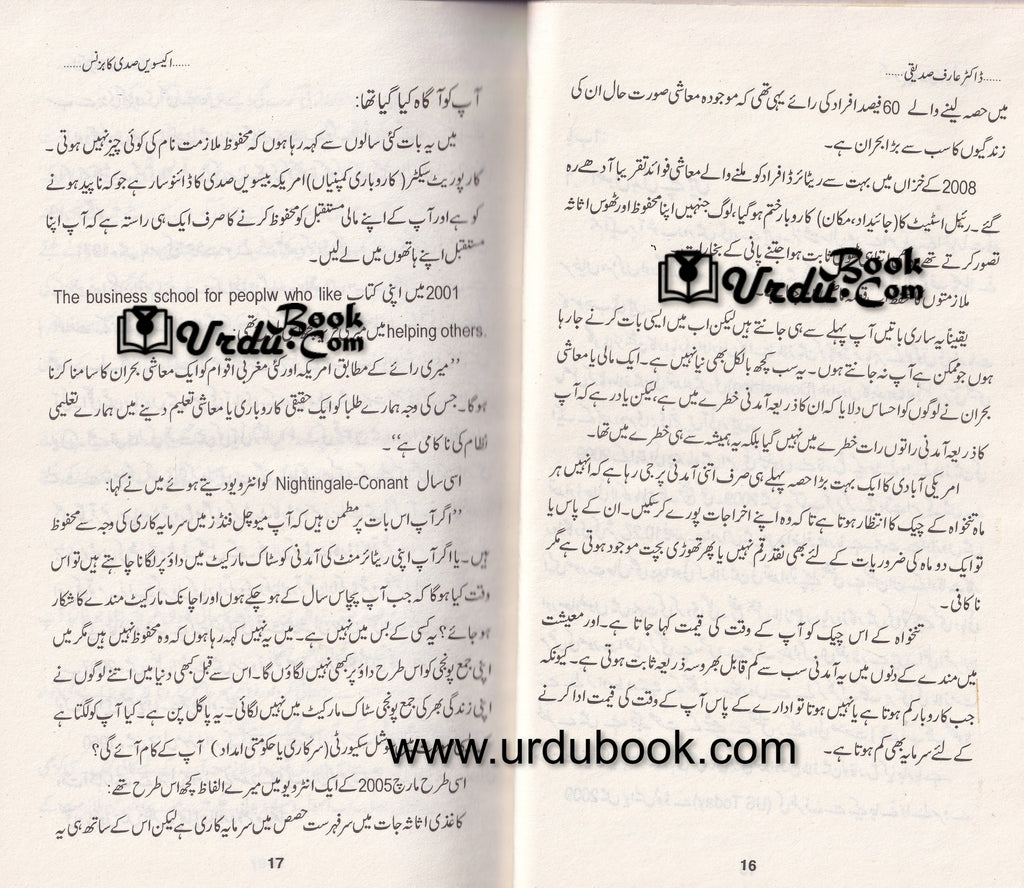 ......ڈاکٹر عارف صدیقی......
میں حصہ لینے والے 60 فیصد افراد کی رائے یہی تھی کہ موجودہ معاشی صورت حال ان کی
زندگیوں کا سب سے بڑا بحران ہے۔
2008 کے خزاں میں بہت سے ریٹائرڈ افراد کو ملنے والے معاشی فوائد تقریباً آدھے رہ
گئے۔ رئیل اسٹیٹ کا (جائیداد، مکان) کاروبار ختم ہو گیا، لوگ جنہیں اپنا محفوظ اور ٹھوس اثاثہ
تصور کرتے تھے ثابت ہوا جتنے پانی کے بخارات۔
ملازمتوں کا
یقیناً یہ ساری باتیں آپ پہلے سے ہی جانتے ہیں لیکن اب میں ایسی بات کرنے جا رہا
ہوں جو ممکن ہے آپ نہ جانتے ہوں۔ یہ سب کچھ بالکل بھی نیا نہیں ہے۔ ایک مالی یا معاشی
بحران نے لوگوں کو احساس دلایا کہ ان کا ذریعہ آمدنی خطرے میں ہے، لیکن یاد رہے کہ آپ
کا ذریعہ آمدنی راتوں رات خطرے میں نہیں گیا بلکہ یہ ہمیشہ سے ہی خطرے میں تھا۔
امریکی آبادی کا ایک بہت بڑا حصہ پہلے ہی صرف اتنی آمدنی پر جی رہا ہے کہ انہیں ہر
ماہ تنخواہ کے چیک کا انتظار ہوتا ہے تا کہ وہ اپنے اخراجات پورے کر سکیں۔ ان کے پاس یا
تو ایک دو ماہ کی ضروریات کے لئے بھی نقد رقم نہیں یا پھر تھوڑی بچت موجود ہوتی ہے مگر
ناکافی۔
تنخواہ کے اس چیک کو آپ کے وقت کی قیمت کہا جاتا ہے۔ اور معیشت
میں مندے کے دنوں میں یہ آمدنی سب سے کم قابل بھروسہ ذریعہ ثابت ہوتی ہے۔ کیونکہ
جب کاروبار کم ہوتا ہے یا نہیں ہوتا تو ادارے کے پاس آپ کے وقت کی قیمت ادا کرنے
کے لئے سرمایہ بھی کم ہوتا ہے۔
16
......اکیسویں صدی کا بزنس......
آپ کو آگاہ کیا گیا تھا:
میں یہ بات کئی سالوں سے کہہ رہا ہوں کہ محفوظ ملازمت نام کی کوئی چیز نہیں ہوتی۔
کارپوریٹ سیکٹر (کاروباری کمپنیاں) امریکہ بیسویں صدی کا ڈائنوسار ہے جو کہ ناپید ہونے
کو ہے اور آپ کے اپنے مالی مستقبل کو محفوظ کرنے کا صرف ایک ہی راستہ ہے کہ آپ اپنا
مستقبل اپنے ہاتھوں میں لے لیں۔
2001 میں اپنی کتاب The business school for peoplw who like
helping others. میں میری تھی۔
’’میری رائے کے مطابق امریکہ اور کئی مغربی اقوام کو ایک معاشی بحران کا سامنا کرنا
ہوگا۔ جس کی وجہ ہمارے طلبا کو ایک حقیقی کاروباری یا معاشی تعلیم دینے میں ہمارے تعلیمی
نظام کی ناکامی ہے‘‘۔
اسی سال Nightingale-Conant کو انٹرویو دیتے ہوئے میں نے کہا:
’’اگر آپ اس بات پر مطمئن ہیں کہ آپ میوچل فنڈز میں سرمایہ کاری کی وجہ سے محفوظ
ہیں۔ یا اگر آپ اپنی ریٹائرمنٹ کی آمدنی کو سٹاک مارکیٹ میں داؤ پر لگانا چاہتے ہیں تو اس
وقت کیا ہوگا کہ جب آپ پچاس سال کے ہو چکے ہوں اور اچانک مارکیٹ مندے کا شکار
ہو جائے؟ یہ کسی کے بس میں نہیں ہے۔ میں یہ نہیں کہہ رہا ہوں کہ وہ محفوظ نہیں ہیں مگر میں
اپنی جمع پونجی کو اس طرح داؤ پر کبھی نہیں لگاؤں گا۔ اس سے قبل کبھی دنیا میں اتنے لوگوں نے
اپنی زندگی بھر کی جمع پونجی سٹاک مارکیٹ میں نہیں لگائی۔ یہ پاگل پن ہے۔ کیا آپ کو لگتا ہے
سوشل سکیورٹی (سرکاری یا حکومتی امداد) آپ کے کام آئے گی؟
اسی طرح مارچ 2005 کے ایک انٹرویو میں میرے الفاظ کچھ اس طرح تھے:
کاغذی اثاثہ جات میں سرفہرست حصص میں سرمایہ کاری ہے لیکن اس کے ساتھ ہی یہ
17
Urdu Book.Com
Urdu Book.Com
www.urdubook.com